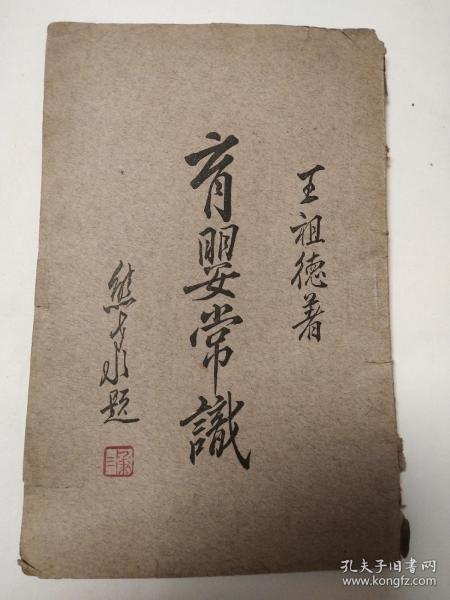 王祖德著
育嬰常識
熊
題
孔夫子旧书网
www.kongfz.com